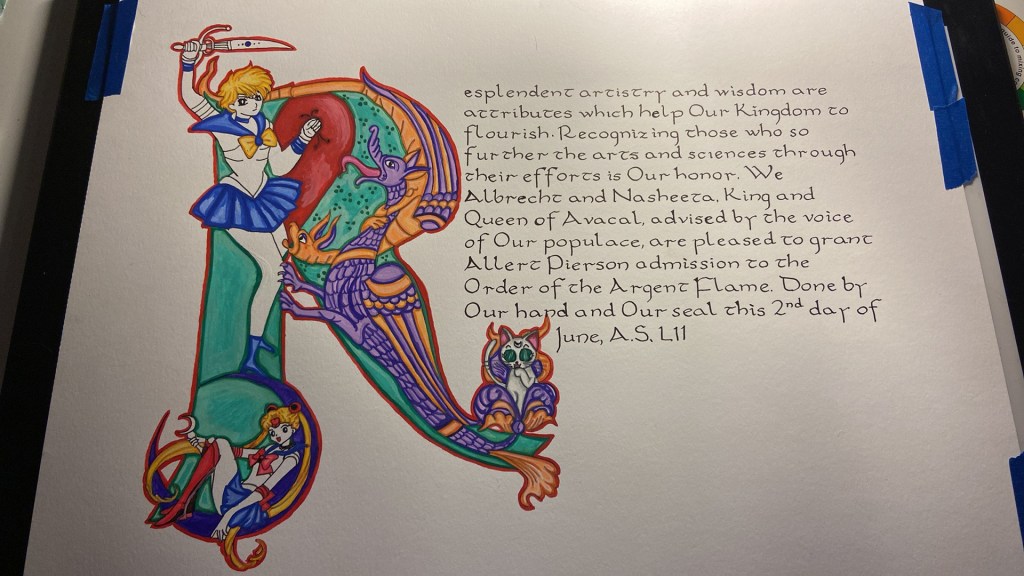 Resplendent artistry and wisdom are
attributes which help Our Kingdom to
flourish. Recognizing those who so
further the arts and sciences through
their efforts is Our honor. We
Albrecht and Nasheeta, King and
Queen of Avacal, advised by the voice
of Our populace, are pleased to grant
Allert Pierson admission to the
Order of the Argent Flame. Done by
Our hand and Our seal this 2nd day of
June, A.S. LII